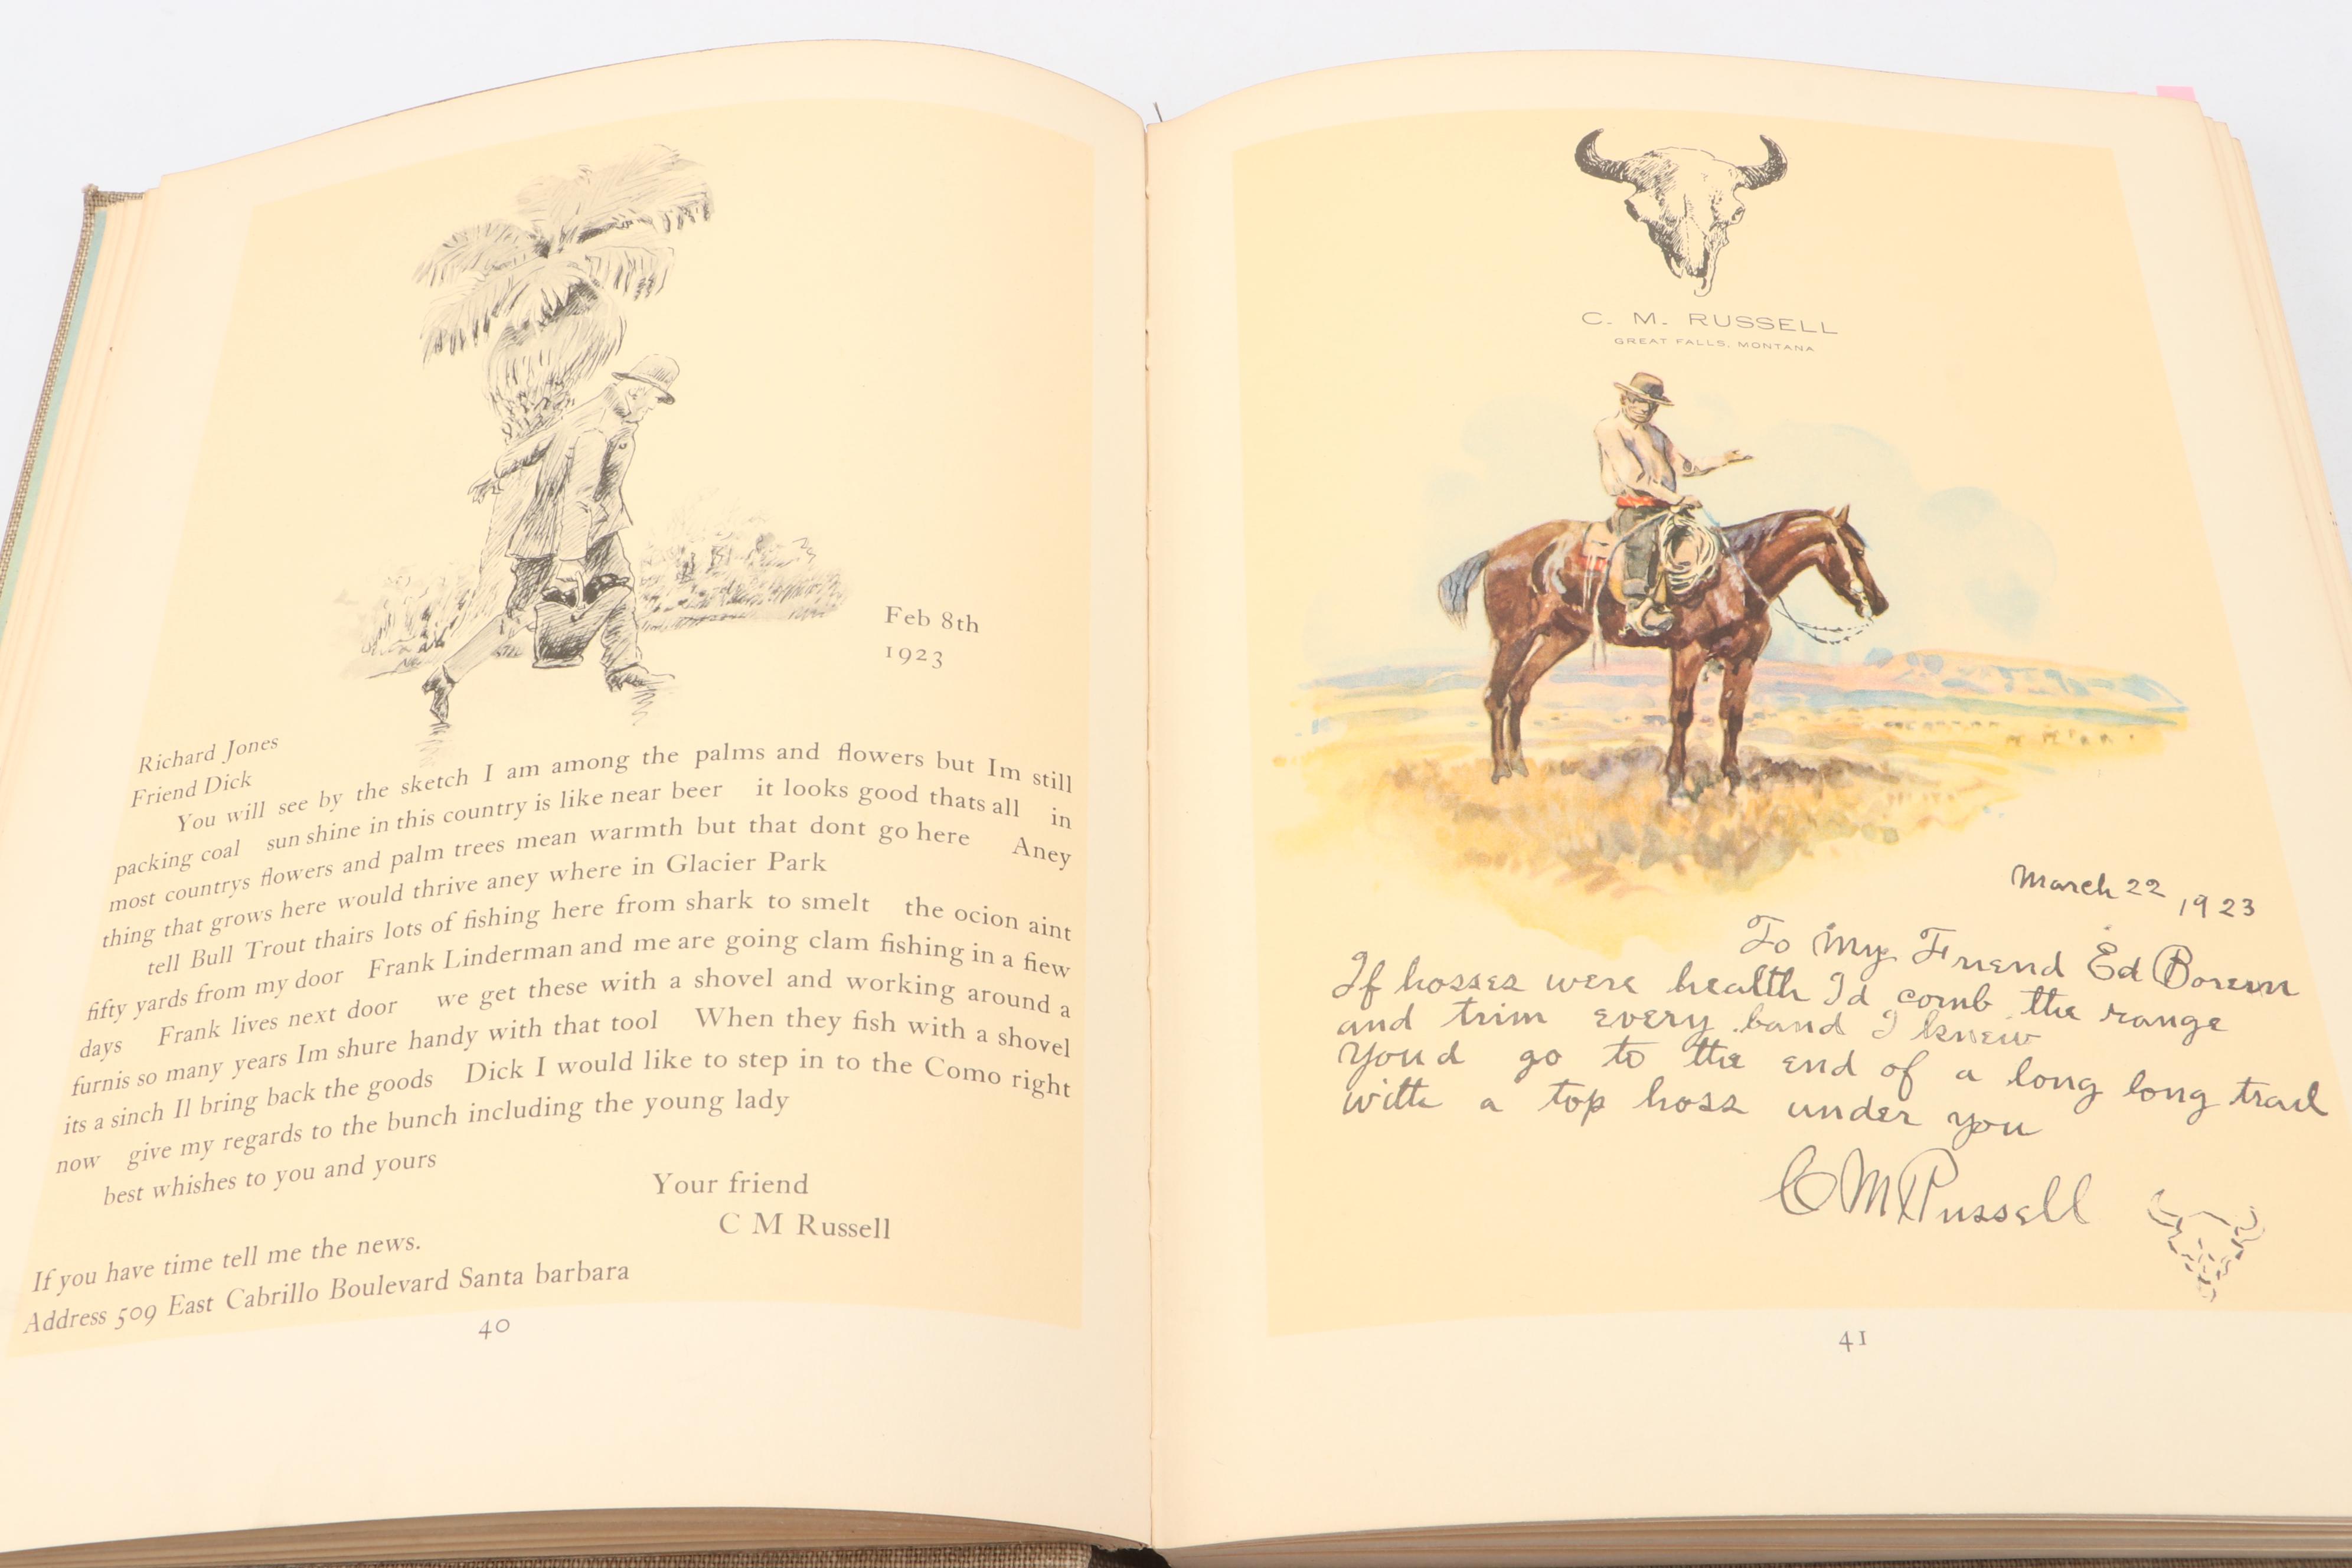 Feb 8th
1923
Richard Jones
Friend Dick
You will see by the sketch I am among the palms and flowers but Im still
packing coal sun shine in this country is like near beer it looks good thats all in
most countrys flowers and palm trees mean warmth but that dont go here Aney
thing that grows here would thrive aney where in Glacier Park
tell Bull Trout thairs lots of fishing here from shark to smelt the ocion aint
fifty yards from my door Frank Linderman and me are going clam fishing in a fiew
days Frank lives next door we get these with a shovel and working around a
furnis so many years Im shure handy with that tool When they fish with a shovel
its a sinch Il bring back the goods Dick I would like to step in to the Como right
now give my regards to the bunch including the young lady
best whishes to you and yours
Your friend
C M Russell
If you have time tell me the news.
Address 509 East Cabrillo Boulevard Santa barbara
40
C. M. RUSSELL
GREAT FALLS, MONTANA
March 22 1923
To My Friend Ed Borein
If hosses were health Id comb the range
and trim every band I knew
Youd go to the end of a long long trail
with a top hoss under you
CM Russell
41